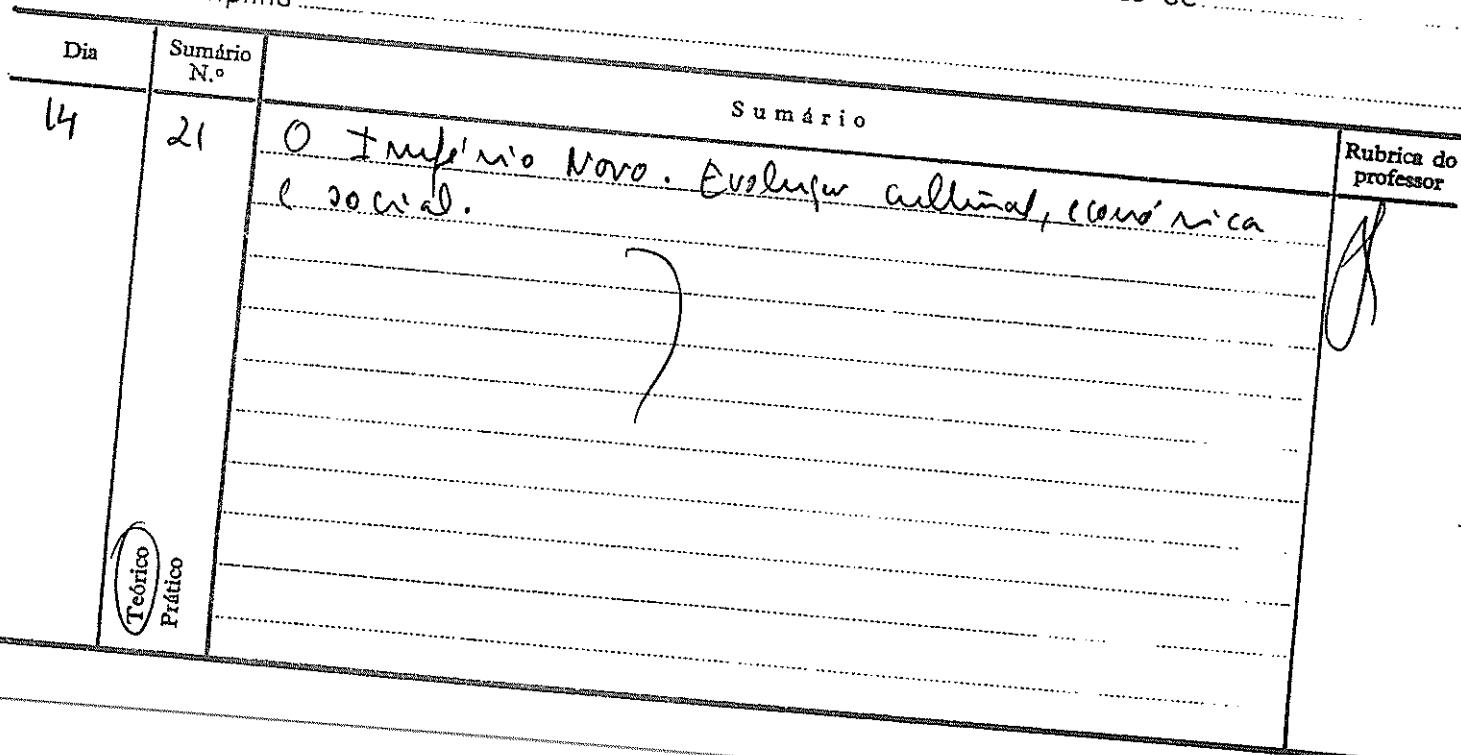 Dia Sumário N.º Sumário Rubrica do professor
14 21 O Império Novo. Evolução cultural, económica
e social.
Teórico
Prático